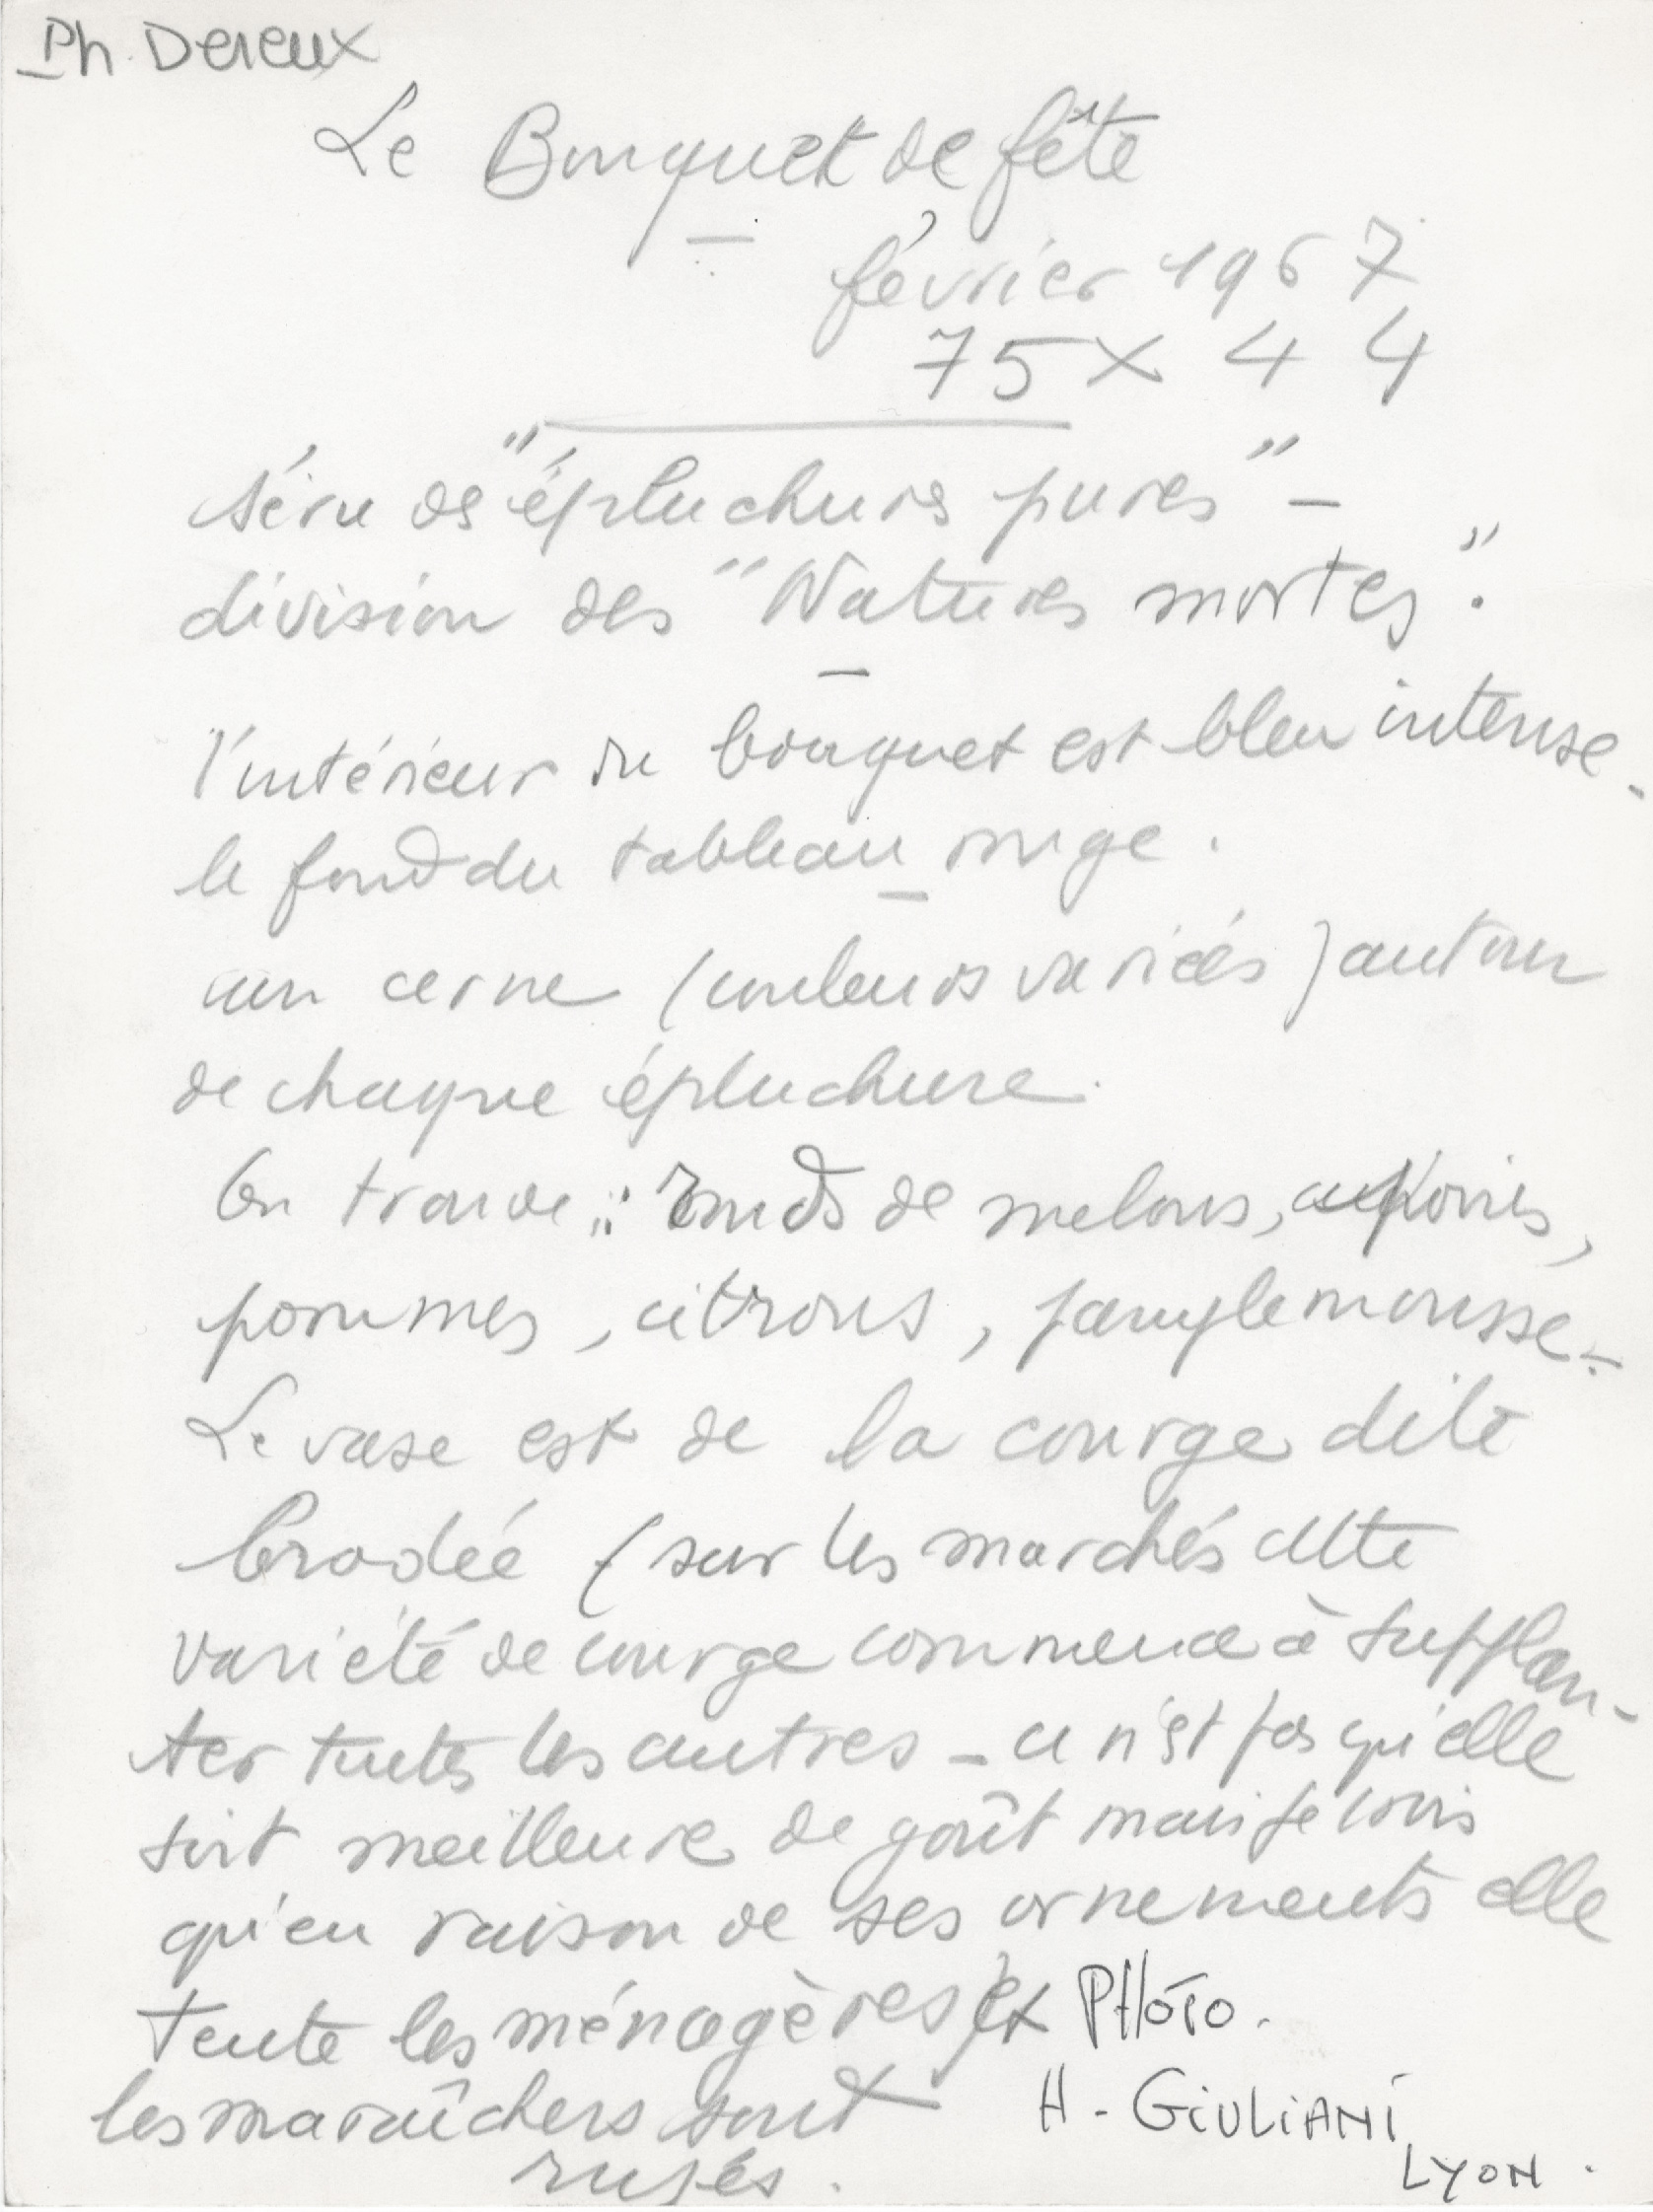 Ph. Dereux
Le Bouquet de fête
février 1967
75 x 44
série de "épluchures pures" -
division des "Natures mortes".
l'intérieur du bouquet est bleu intense.
le fond du tableau rouge.
un cerne (couleurs variées) autour
de chaque épluchure.
On trouve : ronds de melons, poires,
pommes, citrons, pamplemousse.
Le vase est de la courge dite
brodée (sur les marchés cette
variété de courge commence à supplan-
ter toutes les autres - ce n'est pas qu'elle
soit meilleure de goût mais je crois
qu'en raison de ses ornements elle
tente les ménagères) et
les maraîchers sont
rusés.
PHOTO.
H. GIULIANI
LYON.